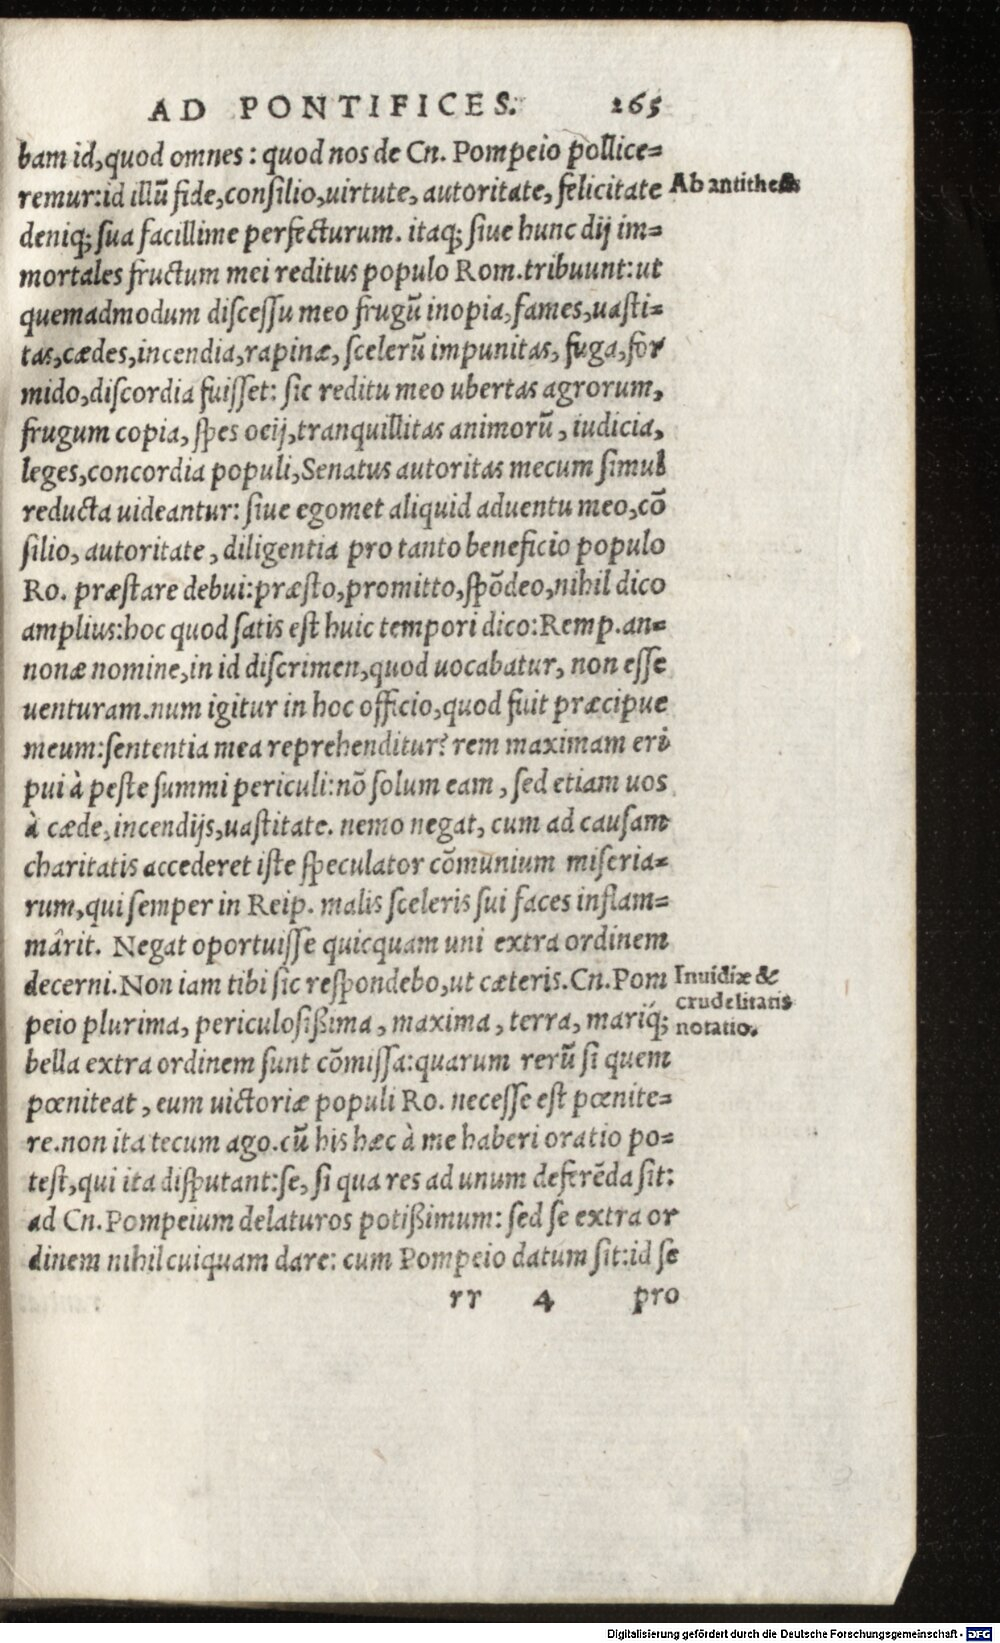 AD PONTIFICES. 265
bam id, quod omnes: quod nos de Cn. Pompeio pollice=
remur: id illū fide, consilio, uirtute, autoritate, felicitate
Ab antithesis
deniq; sua facillime perfecturum. itaq; siue hunc dij im=
mortales fructum mei reditus populo Rom. tribuunt: ut
quemadmodum discessu meo frugū inopia, fames, uasti=
tas, cædes, incendia, rapinæ, scelerū impunitas, fuga, for
mido, discordia fuisset: sic reditu meo ubertas agrorum,
frugum copia, spes ocij, tranquillitas animorū, iudicia,
leges, concordia populi, Senatus autoritas mecum simul
reducta uideantur: siue egomet aliquid aduentu meo, cō
silio, autoritate, diligentia pro tanto beneficio populo
Ro. præstare debui: præsto, promitto, spōdeo, nihil dico
amplius: hoc quod satis est huic tempori dico: Remp. an=
nonæ nomine, in id discrimen, quod uocabatur, non esse
uenturam. num igitur in hoc officio, quod fuit præcipue
meum: sententia mea reprehenditur? rem maximam eri
pui à peste summi periculi: nō solum eam, sed etiam uos
à cæde, incendijs, uastitate. nemo negat, cum ad causam
charitatis accederet iste speculator cōmunium miseria=
rum, qui semper in Reip. malis sceleris sui faces inflam=
mârit. Negat oportuisse quicquam uni extra ordinem
decerni. Non iam tibi sic respondebo, ut cæteris. Cn. Pom
Inuidiæ &
crudelitatis
notatio.
peio plurima, periculosißima, maxima, terra, mariq́;
bella extra ordinem sunt cōmissa: quarum rerū si quem
pœniteat, eum uictoriæ populi Ro. necesse est pœnite=
re. non ita tecum ago. cū his hæc à me haberi oratio po=
test, qui ita disputant: se, si qua res ad unum deferēda sit:
ad Cn. Pompeium delaturos potißimum: sed se extra or
dinem nihil cuiquam dare: cum Pompeio datum sit: id se
rr 4 pro
Digitalisierung gefördert durch die Deutsche Forschungsgemeinschaft - DFG